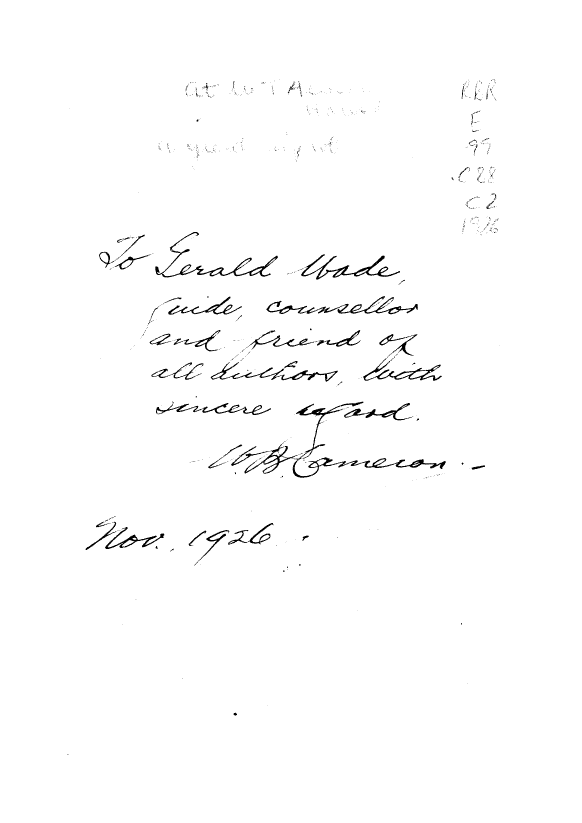 At
RBR
E
99
.C28
C2
1926
To Gerald Wade,
guide, counsellor
and friend of
all authors, with
sincere regard.
W.B. Cameron.-
Nov. 1926.